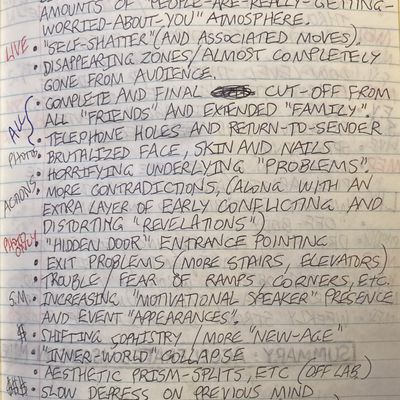 AMOUNTS OF "PEOPLE-ARE-REALLY-GETTING-
WORRIED-ABOUT-YOU" ATMOSPHERE.
LIVE • "SELF-SHATTER" (AND ASSOCIATED MOVES).
• DISAPPEARING ZONES / ALMOST COMPLETELY
GONE FROM AUDIENCE.
• COMPLETE AND FINAL CUT-OFF FROM
ALL "FRIENDS" AND EXTENDED "FAMILY".
• TELEPHONE HOLES AND RETURN-TO-SENDER
PHOTO • BRUTALIZED FACE, SKIN AND NAILS
• HORRIFYING UNDERLYING "PROBLEMS".
ACTIONS • MORE CONTRADICTIONS, (ALONG WITH AN
EXTRA LAYER OF EARLY CONFLICTING AND
DISTORTING "REVELATIONS")
• "HIDDEN DOOR" ENTRANCE POINTING
• EXIT PROBLEMS (MORE STAIRS, ELEVATORS)
• TROUBLE / FEAR OF RAMPS, CORNERS, ETC.
S.M. • INCREASING "MOTIVATIONAL SPEAKER" PRESENCE
AND EVENT "APPEARANCES".
# • SHIFTING SOPHISTRY / MORE "NEW-AGE"
• "INNER-WORLD" COLLAPSE
• AESTHETIC PRISM-SPLITS, ETC (OFF LAB.)
### • SLOW DEPRESS ON PREVIOUS MIND